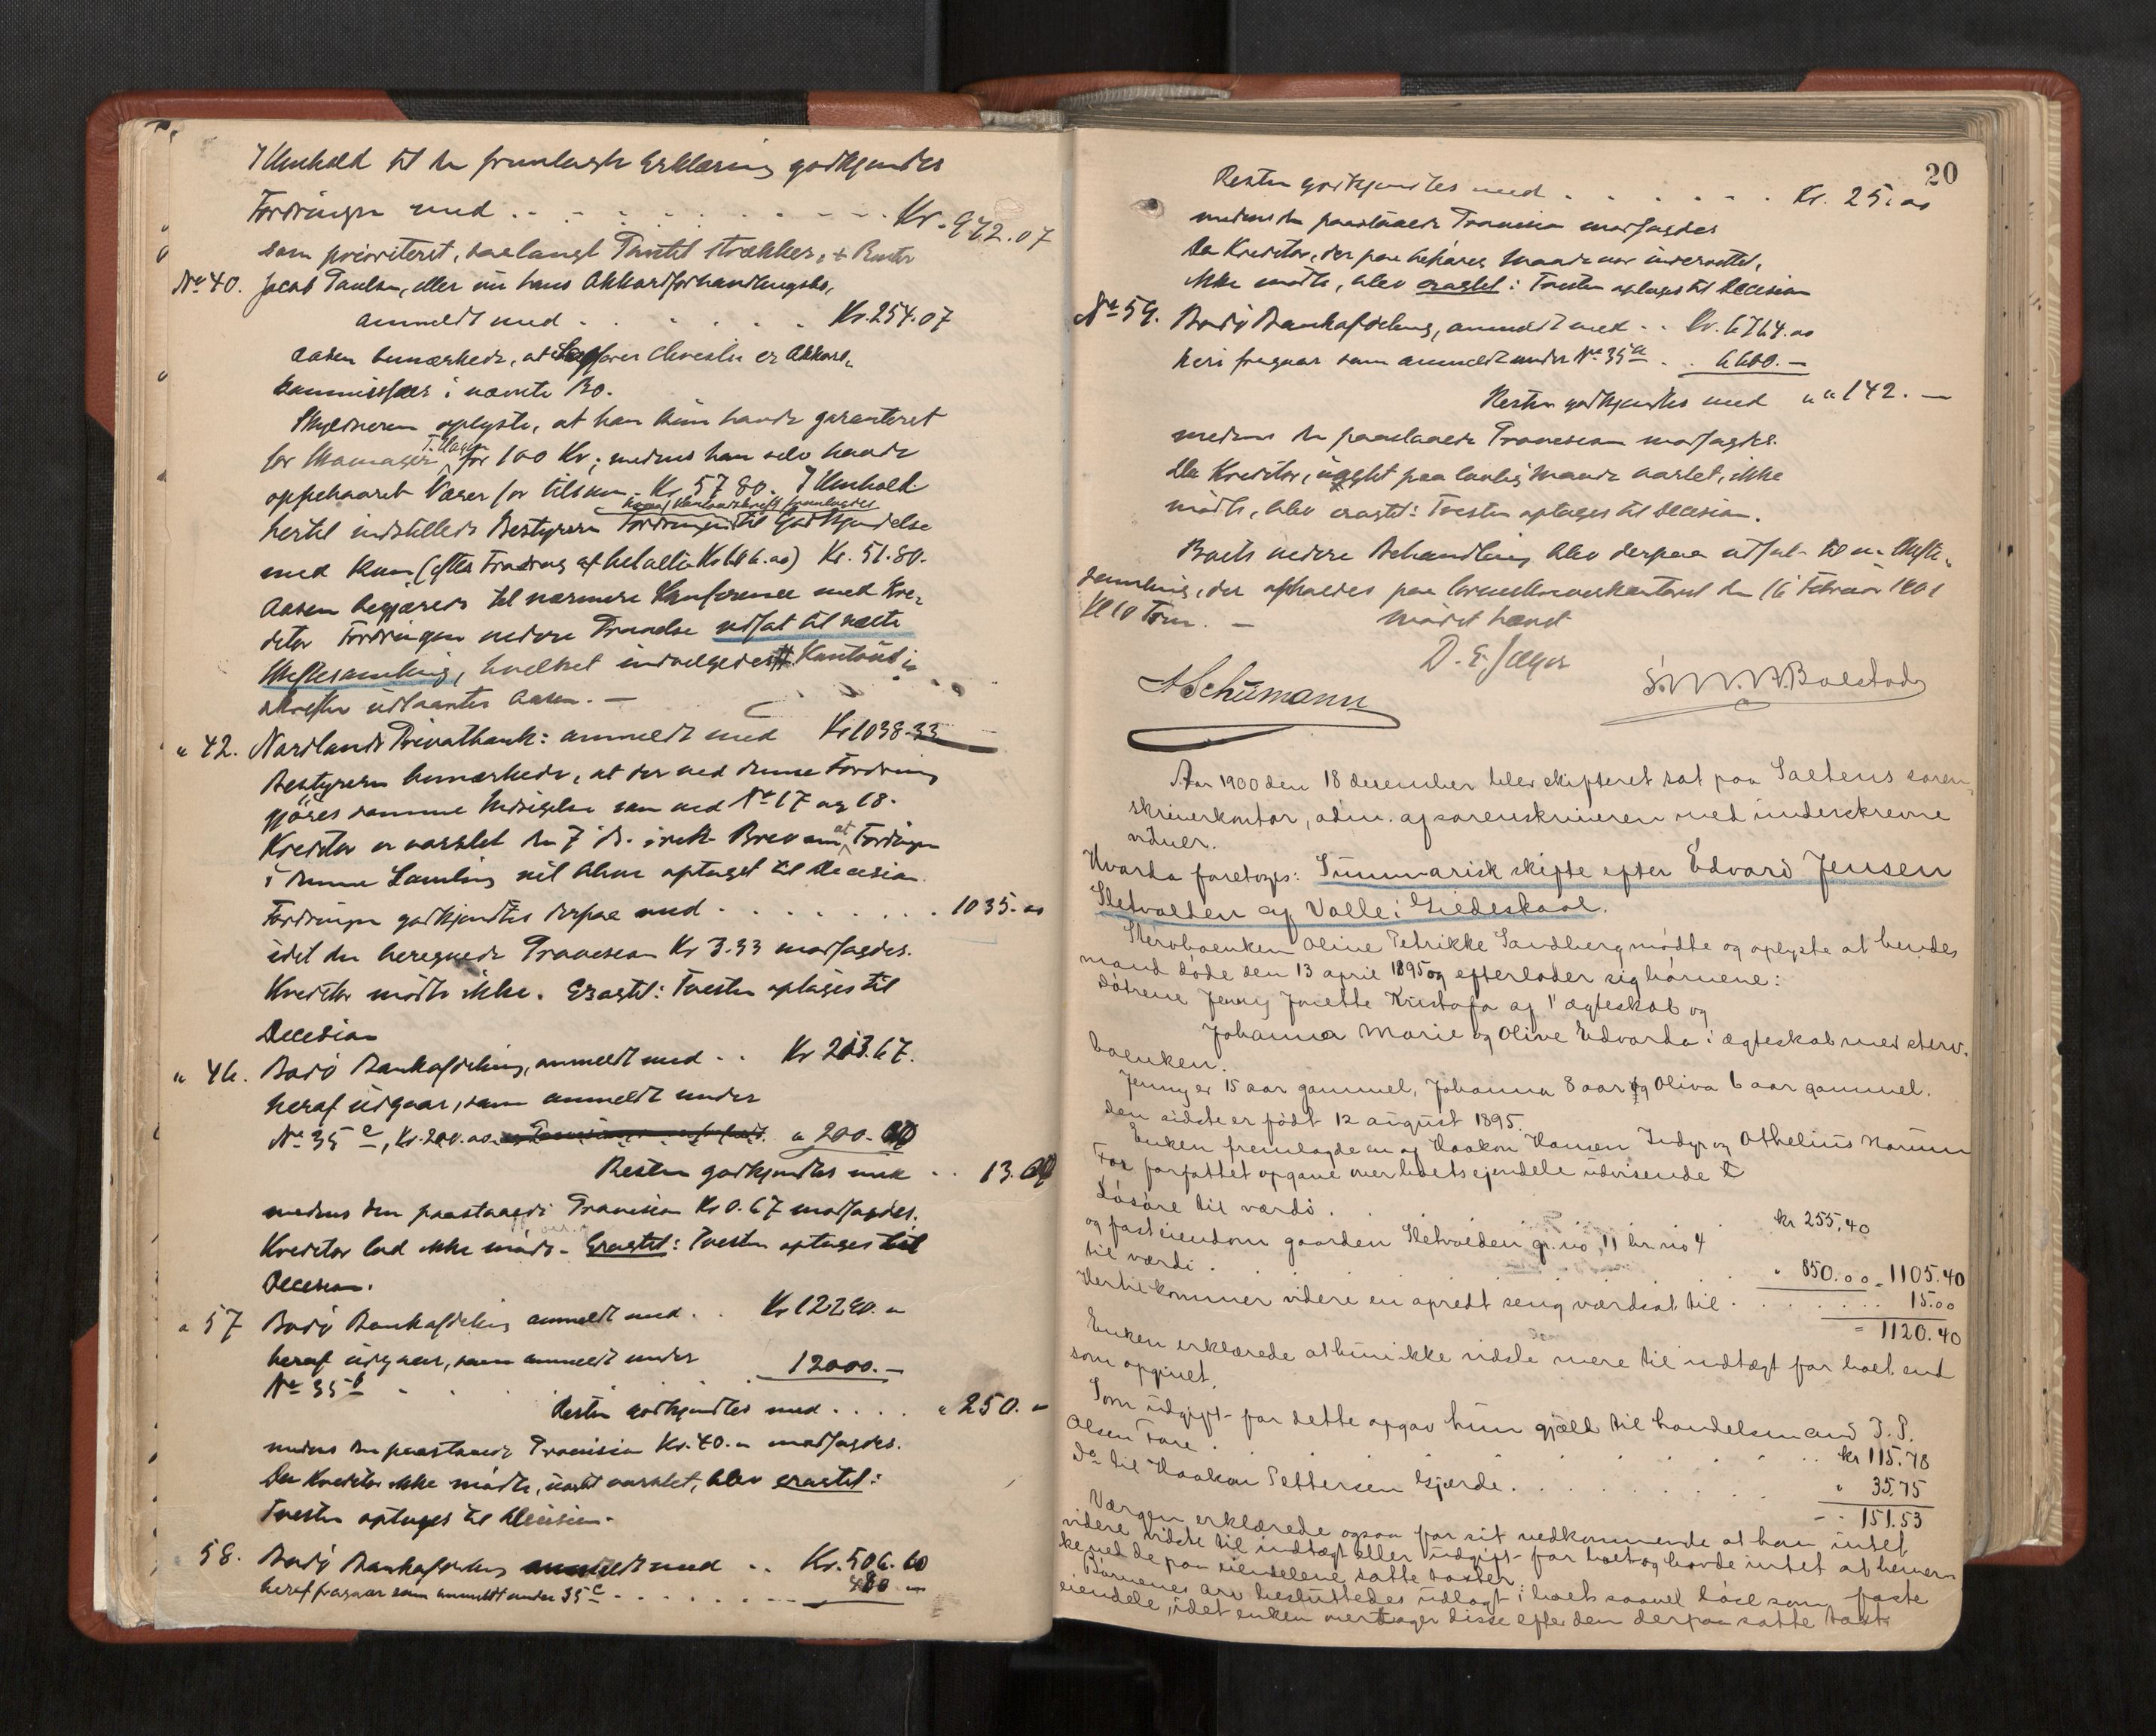 I Henhold til den fremlagte Erklæring godkjendtes
Fordringen med . . . . . . . . . Kr. 972.07
som prioriteret, saalangt Pantet strækker, + Renter
No 40. Jacob Paulsen, eller nu hans Akkordforhandlingsbo,
anmeldt med . . . . . . Kr. 254.07
Aasen bemærkede, at er Akkord-
kommissær i nævnte Bo.
Skyldneren oplyste, at han kun havde garanteret
for for 100 Kr; medens han selv havde
oppebaaret Varer for tilsam. Kr. 57 80. I Henhold
hertil indstillede Bestyreren Fordringen til Godkjendelse
med kun (efter Fradrag af betalte Kr 6.00) Kr. 51.80.
Aasen begjærede til nærmere Konference med Kre-
ditor Fordringens videre Prøvelse udsat til næste
Skiftesamling, hvilket indvilgedes. Kontoud-
skriften udlaantes Aasen. —
" 42. Nordlands Privatbank: anmeldt med Kr 1038.33
Bestyreren bemærkede, at der ved denne Fordring
gjøres samme Indsigelse som ved No 17 og 18.
Kreditor er varslet den 7 ds. i rek. Brev om, at Fordringen
i denne Samling vil blive optaget til Decision.
Fordringen godkjendtes derpaa med . . . . . . . . 1035.00
idet den beregnede Provision Kr 3.33 modsagdes.
Kreditor mødte ikke. Eragtet: Tvisten optages til
Decision
" 46. Bodø Bankafdeling, anmeldt med . . Kr 213.67.
heraf udgaar, som anmeldt under
No 35 e, Kr. 200.00 " 200.00
Resten godkjendtes med . . 13.00
medens den paastaaede Provision Kr 0.67 modsagdes.
Kreditor lod ikke møde. Eragtet: Tvisten optages til
Decision.
" 57 Bodø Bankafdeling anmeldt med . . Kr 12290. "
heraf udgaar, som anmeldt under
No 35 b . . . . 12000. —
Resten godkjendtes med . . . . " 250. "
medens den paastaaede Provision Kr. 40. " modsagdes.
Da Kreditor ikke mødte, uagtet varslet, blev eragtet:
Tvisten optages til Decision.
" 58. Bodø Bankafdeling anmeldt med . . Kr. 506.60
heraf fragaar som anmeldt under 35 c . . . . . . . 480 "
20
Resten godkjendtes med . . . . . . Kr. 25.00
medens den paastaaede Provision modsagdes
Da Kreditor, der paa behørig Maade var underrettet,
ikke mødte, blev eragtet: Tvisten optages til Decision
No 59. Bodø Bankafdeling, anmeldt med . . Kr. 6764.00
heri fragaar som anmeldt under No 35 a . . 6600. —
Resten godkjendtes med " " 142. —
medens den paastaaede Provision modsagdes.
Da Kreditor, uagtet paa lovlig Maade varslet, ikke
mødte, blev eragtet: Tvisten optages til Decision.
Boets videre Behandling blev derpaa udsat til en Skifte-
samling, der afholdes paa Sorenskriverkontoret den 16 Februar 1901
Kl 10 Form. — Mødet hævet
D. E. Jæger
A Schumann
Bolstad
Aar 1900 den 18 desember blev skifteret sat paa Saltens soren-
skriverkontor, adm. af sorenskriveren med underskrevne
vidner.
Hvorda foretoges: Summarisk skifte efter Edvard Jensen
Sletvolden af Valle i Gildeskaal.
Stervboenken Oline Petrikke Sandberg mødte og oplyste at hendes
mand døde den 13 april 1895 og efterlader sig børnene:
døtrene Jenny Jonette Kristofa af 1' ægteskab og
Johanna Marie og Olive Edvarda i ægteskab med sterv-
boenken.
Jenny er 15 aar gammel, Johanna 8 aar og Oliva 6 aar gammel.
den sidste er født 12 august 1895.
Enken fremlagde en af Haakon Hansen Indyr og Othelius Mariun
Før forfattet opgave over boets ejendele udvisende
Løsøre til værdi . . . . . . . kr 255,40
og fast eiendom gaarden Sletvolden gr. no 11 br. no 4
til værdi . . . . . . . " 850.00 = 1105.40
Hertil kommer videre en opredt seng værdsat til . . . . . . 15.00
= 1120.40
Enken erklærede at hun ikke vidste mere til indtægt for boet end
som opgivet.
Som udgift for dette opgav hun gjæld til handelsmand J. P.
Olsen Fore . . . . . . . . . kr 115.78
Do til Haakon Pettersen Gjerde . . . . . . . " 35.75
— " 151.53
Værgen erklærede ogsaa for sit vedkommende at han intet
videre vidste til indtægt eller udgift for boet og havde intet at bemær-
ke ved de paa eiendelene satte taxter.
Børnenes arv besluttedes udlagt i boets saavel løse som faste
eiendele, idet enken overtager disse efter den derpaa satte taxt